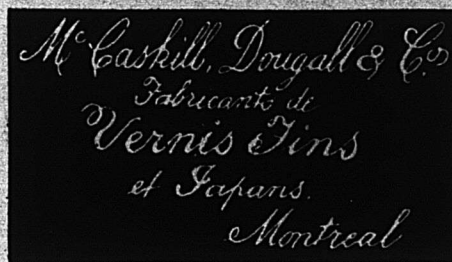 Mc Caskill, Dougall & Co.
Fabricants de
Vernis Fins
et Japans.
Montreal